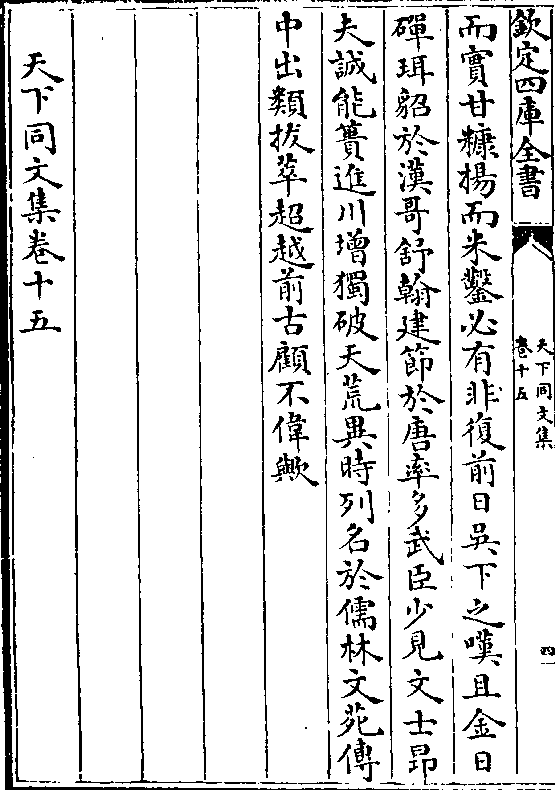 欽定四庫全書
天下同文集
卷十五
四
而實甘糠揚而米鑿必有非復前日吳下之嘆且金日
磾珥貂於漢哥舒翰建節於唐率多武臣少見文士昂
夫誠能簣進川增獨破天荒異時列名於儒林文苑傳
中出類拔萃超越前古顧不偉歟
天下同文集卷十五